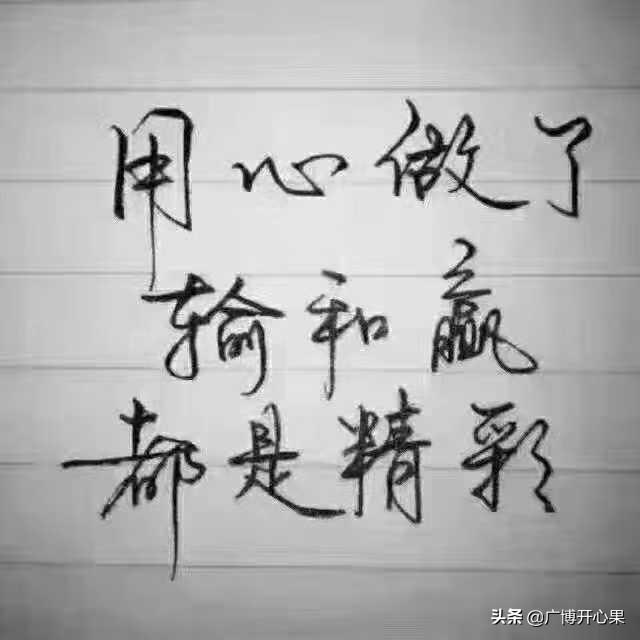 用心做了
输和赢
都是精彩
头条 @广博开心果